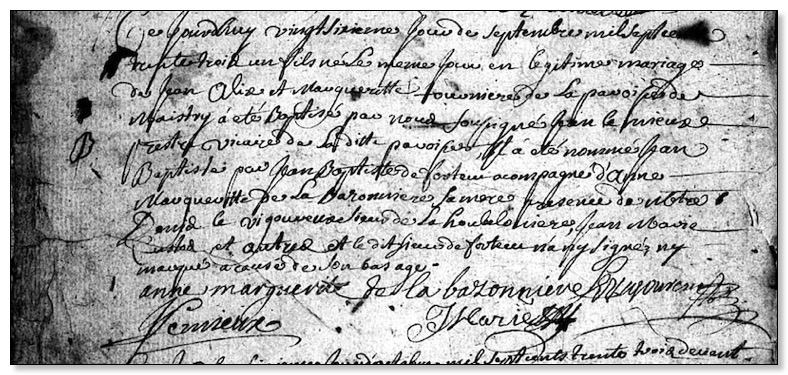 Ce jourdhuy vingtsixieme jour de septembre mil sept cen
trente trois un fils né le meme jour en legitime mariage
de Jean Alix et Margueritte fourniere de la paroisse de
Maistry á été Baptisé par nous soussigné Jean le mieux
B prestre vicaire de laditte paroisse, Il á été nommé Jan
Baptiste par Jean Baptiste de forteu acompagné d'anne
Margueritte de La Bazonniere sa mere presence de
Denis le vigoureux sieur de la houbelonniere, Jean Marie
et autres et ledit sieur de forteu na ny signez ny
marqué a cause de son bas age
anne marguerite de la bazonniere Levigoureux
Lemieux JMarie
mil sept cents trente trois devant